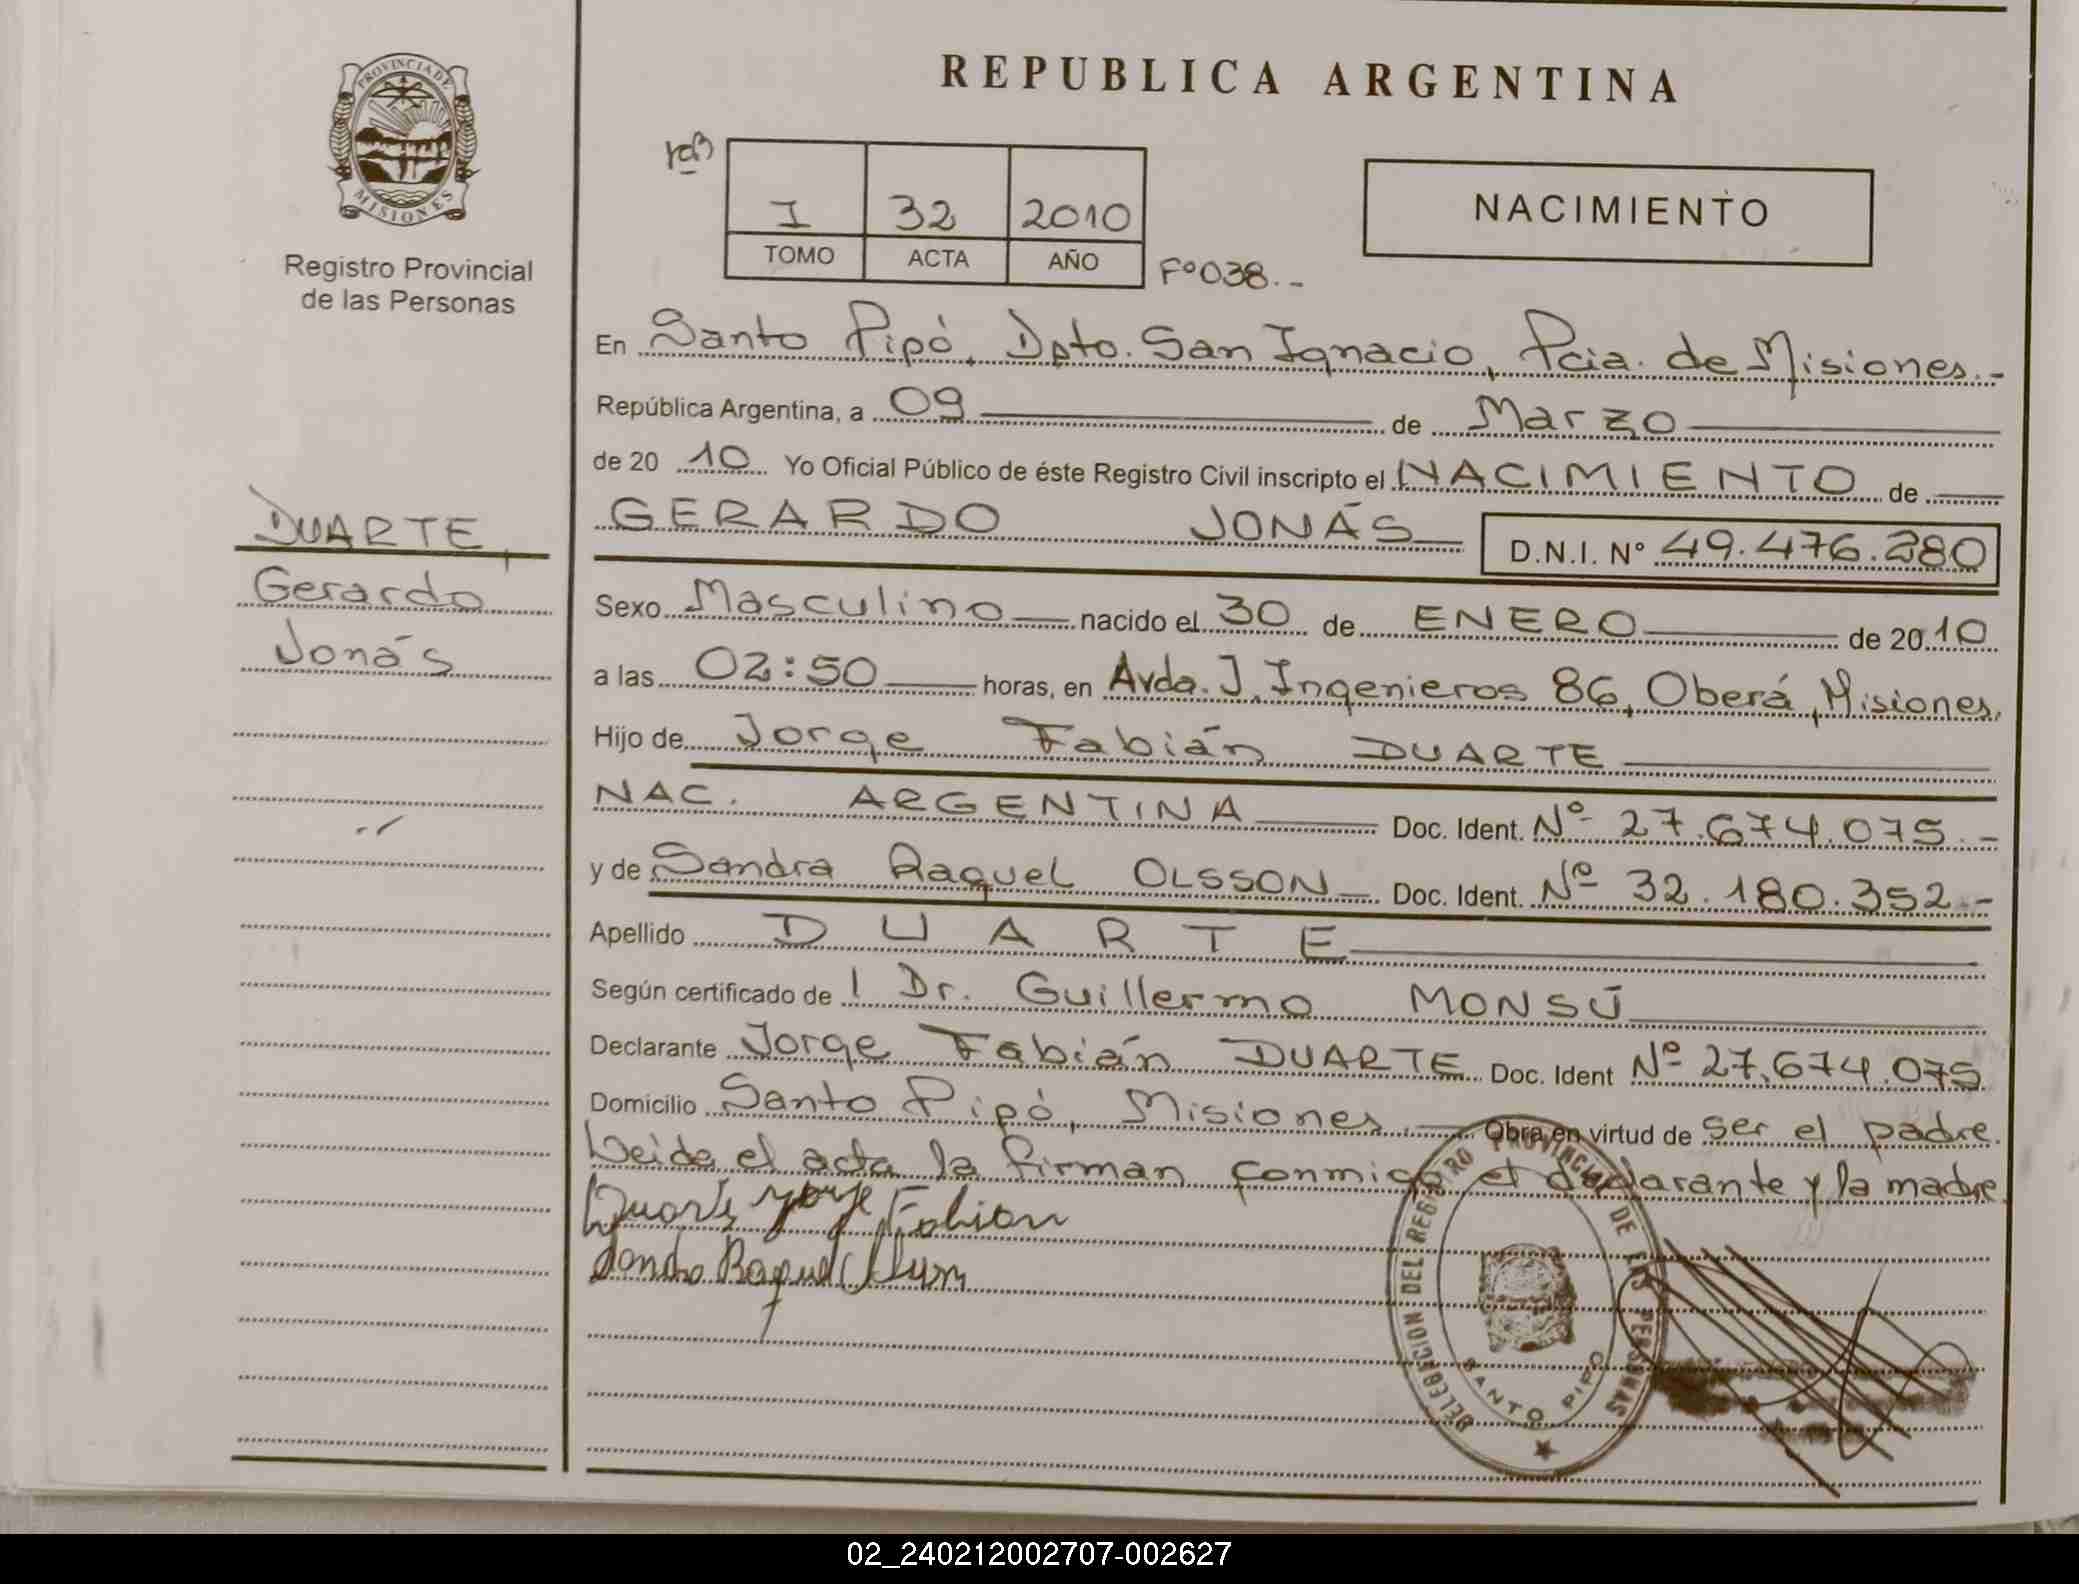 PROVINCIA DE
MISIONES
Registro Provincial
de las Personas
DUARTE,
Gerardo
Jonás
REPUBLICA ARGENTINA
I 32 2010
TOMO ACTA AÑO
Fº038.-
NACIMIENTO
En Santo Pipó, Dpto. San Ignacio, Pcia. de Misiones.-
República Argentina, a 09 de Marzo
de 20 10 Yo Oficial Público de éste Registro Civil inscripto el NACIMIENTO de
GERARDO JONÁS D.N.I. Nº 49.476.280
Sexo Masculino nacido el 30 de ENERO de 20 10
a las 02:50 horas, en Avda. J. Ingenieros 86, Oberá, Misiones.
Hijo de Jorge Fabián DUARTE
NAC. ARGENTINA Doc. Ident. Nº 27.674.075.-
y de Sandra Raquel OLSSON Doc. Ident. Nº 32.180.352.-
Apellido DUARTE
Según certificado de l Dr. Guillermo MONSÚ
Declarante Jorge Fabián DUARTE Doc. Ident Nº 27.674.075
Domicilio Santo Pipó, Misiones. Obra en virtud de ser el padre.
Leida el acta la firman conmigo el declarante y la madre.
Duarte Jorge Fabian
Sandra Raquel
DELEGACION DEL REGISTRO PROVINCIAL DE LAS PERSONAS
SANTO PIPO
02_240212002707-002627